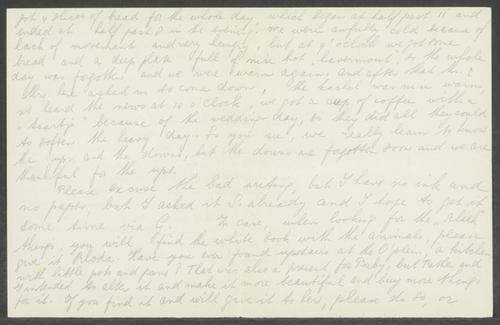 got 4 slices of bread for the whole day, which began at half past 11 and
ended at half past 8 in the evening. We were awfully cold because of
lack of movement and very hungry, but at 9 o'clock we got some
bread and a deep plate full of nice hot "havermout". So the whole
day was forgotten and we were warm again, and after that Mr. &
Mrs. asked us to come down, the kachel was nice warm,
we heard the news at 10 o'clock, we got a cup of coffee with a
"taartje" because of the wedding-day, so they did all they could
to soften the heavy day. So you see, we really learn to know
the ups and the downs, but the downs are forgotten soon and we are
thankful for the ups.
Please excuse the bad writing, but I have no ink and
no paper, but I asked it S. already and I hope to get it
some time via G. In case, when looking for the
things, you will find the white book with the animals, please
give it Bloda. Have you ever found upstairs at the Oplein, a kitchen
with little pots and pans? That was also a present for Baby, but Father and
I intended to alter it and make it more beautiful and buy more things
for it. If you find it and will give it to her, please do so, or